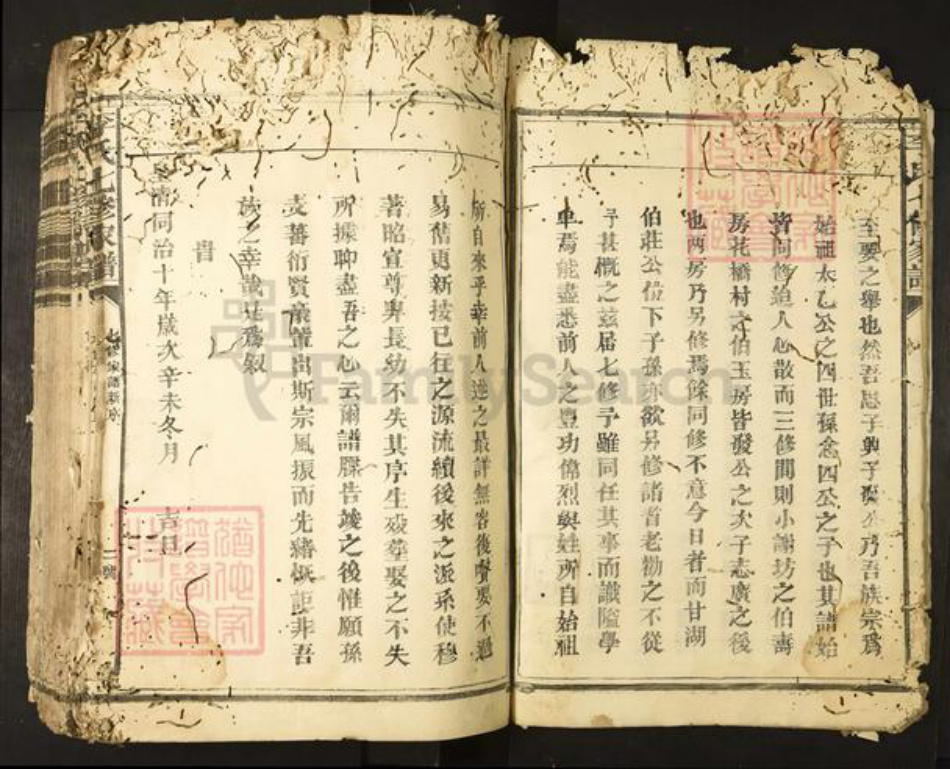 至要之舉也然吾思子興子 公乃吾族宗爲
始祖太乙公之四世孫念四公之子也其譜始
皆同修迨人心散而三修間則小謝坊之伯壽
房花橋村之伯玉房皆發公之次子志廣之後
也两房乃另修焉餘同修不意今日者而甘湖
伯莊公位下子孫亦欲另修諸者老勸之不從
予甚慨之茲届七修予雖同任其事而識隘學
卑焉能盡悉前人之豐功偉烈與姓所自始祖
所自來乎幸前人述之最詳無容後贅要不過
易舊更新接已往之源流續後來之派系使穆
著昭宣尊卑長幼不失其序生歿葬娶之不失
所據聊盡吾之心云爾譜牒告竣之後惟願孫
支蕃衍賢豪疊出斯宗風振而先緒恢詎非吾
族之幸哉是爲叙
旹
皇清同治十年歲次辛未冬月 吉旦
李氏七修家譜
七修家譜新序
二號
李氏七修家譜
FamilySearch